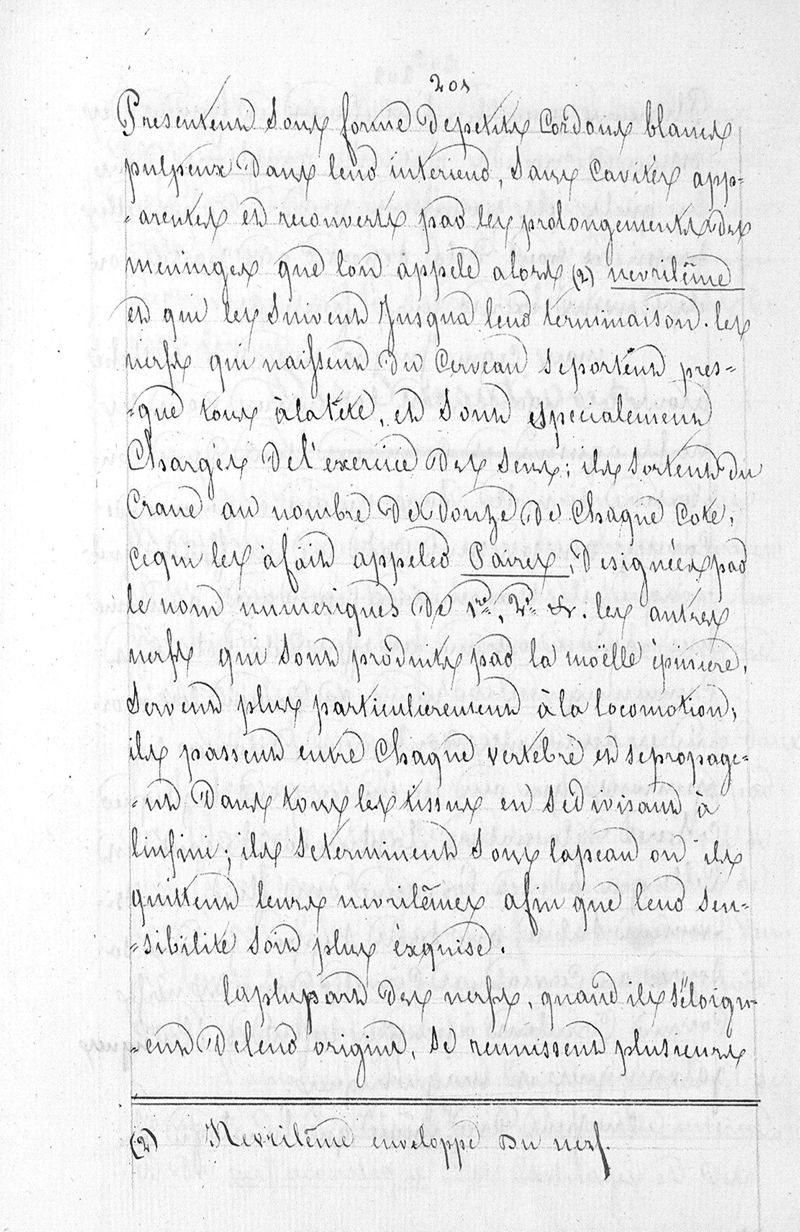 201
Presentent sous forme de petits Cordons blancs
pulpeux dans leur interieur, sans Cavités app-
-arentes et recouverts par les prolongements des
meninges que lon appele alors (2) nevrilême
et qui les Suivent Jusqua leur terminaison. les
nerfs qui naissent du Cerveau Seportent pres-
-que tous àlatête, et Sont especialement
Charges Del'exercice Des Sens; ils Sortent du
Crane au nombre De Douze De Chaque Coté,
cequi les àfait appeler Paires, Designées par
le nom numeriques De 1re, 2e &. les autres
nerfs qui Sont produits par la moëlle épiniere,
Servent plus particulierement à la locomotion;
ils passent entre Chaque vertebre et sepropage-
-nt Dans tous les tissus en Sedivisant à
linfini; ils Seterminent Sous lapeau ou ils
quittent leurs nevrilêmes afin que leur Sen-
-sibilité Soit plus exquise.
laplupart Des nerfs, quand ils s'éloign-
-ent Deleur origine, Se reunissent plusieurs
(2) Nevrilême enveloppe Du nerf